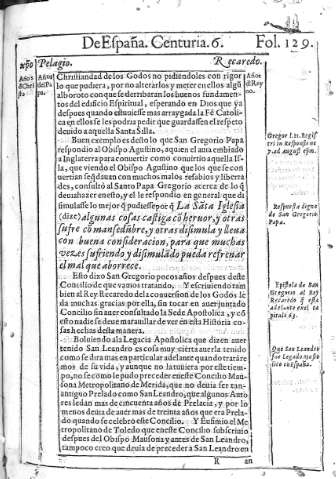 De España. Centuria. 6. Fol. 129.
Año Pelagio. Recaredo.
Años de Christo
Años del Papa
Años del Reyno.
Christiandad de los Godos no pidiendoles con rigor
lo que pudiera, por no alterarlos y meter en ellos algũ
alboroto con que se derribaran los buenos fundamentos
del edificio Espiritual, esperando en Dios que ya
despues quando estuuiesse mas arraygada la Fè Catolica
en ellos se les podria pedir que guardassen el respeto
deuido a aquella Santa Silla.
Buen exemplo es desto lo que San Gregorio Papa
respondio al Obispo Agustino, aquien el auia embiado
a Inglaterra para conuertir como conuirtio aquella Isla,
que viendo el Obispo Agustino que los que se conuertian
quedauan con muchos malos resabios y libertades,
consultò al Santo Papa Gregorio acerca de lo q̃
deuia hazer en esto, y el le respondio en general que disimulasse
lo mejor q̃ pudiesse porq̃ La Sãta Iglesia
(dize) algunas cosas castiga cõ heruor, y otras
sufre cõ mansedũbre, y otras disimula y lleua
con buena consideracion, para que muchas
vezes sufriendo y disimulãdo pueda refrenar
el mal que aborrece.
Esto dixo San Gregorio pocos años despues deste
Concilio de que vamos tratando, Y escriuiendo tambien
al Rey Recaredo de la conuersion de los Godos le
da muchas gracias por ella, sin tocar en auer juntado
Concilio sin auer consultado la Sede Apostolica, y cõ
esto nadie se deue marauillar de ver en esta Historia cosas
hechas desta manera.
Boluiendo a la Legacia Apostolica que dizen auer
tenido San Leandro es cosa muy cierta auerla tenido
como se dira mas en particular adelante quando trataremos
de su vida, y aunque no la tuuiera por este tiempo,
no se como le pudo preceder en este Concilio Mausona
Metropolitano de Merida, que no deuia ser tan antiguo
Prelado como San Leandro, que algunos Autores
le dan mas de cincuenta años de Prelacia, y por lo
menos deuia de auer mas de treinta años que era Prelado
quando se celebrò este Concilio. Y Eufimio el Metropolitano
de Toledo que en este Concilio subscriuio
despues del Obispo Mausona y antes de San Leandro,
tampoco creo que deuia de preceder a San Leandro en
R an
Gregor. l. 12. Registri
Respuesta digna
de San Gregorio
Papa.
Epistola de San
Gregorio al Rey
Recaredo q̃ està
adelante en el capitulo
Que San Leandro
fue Legado Apostolico
en España.